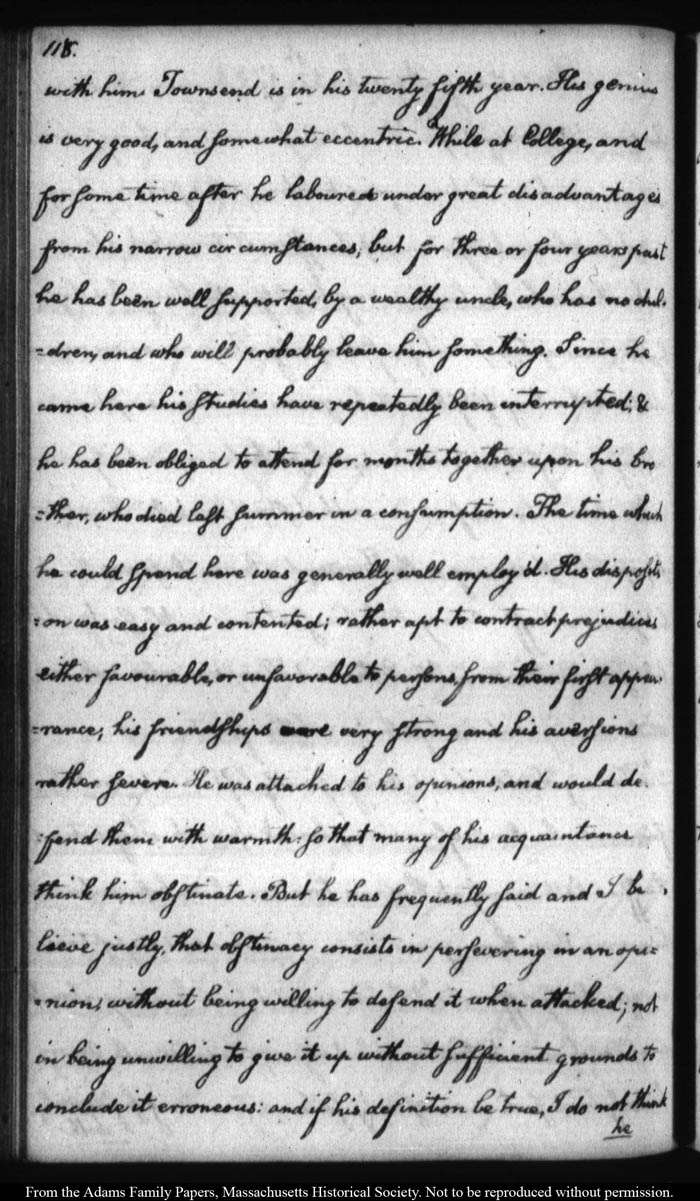 118.
with him. Townsend is in his twenty fifth year. His genius
is very good, and somewhat eccentric. While at College, and
for some time after he laboured under great disadvantages
from his narrow circumstances; but for three or four years past
he has been well supported, by a wealthy uncle, who has no chil-
=dren, and who will probably leave him something. Since he
came here his studies have repeatedly been interrupted; &
he has been obliged to attend for months together upon his bro
=ther, who died last summer in a consumption. The time which
he could spend here was generally well employ'd. His dispositi
=on was easy and contented; rather apt to contract prejudices
either favourable, or unfavorable to persons, from their first appea
=rance; his friendships were very strong and his aversions
rather severe. He was attached to his opinions, and would de
=fend them with warmth: so that many of his acquaintance
think him obstinate. But he has frequently said and I be
lieve justly, that obstinacy consists in persevering in an opi=
=nion, without being willing to defend it when attacked; not
in being unwilling to give it up without sufficient grounds to
conclude it erroneous: and if his definition be true, I do not think
he
From the Adams Family Papers, Massachusetts Historical Society. Not to be reproduced without permission.